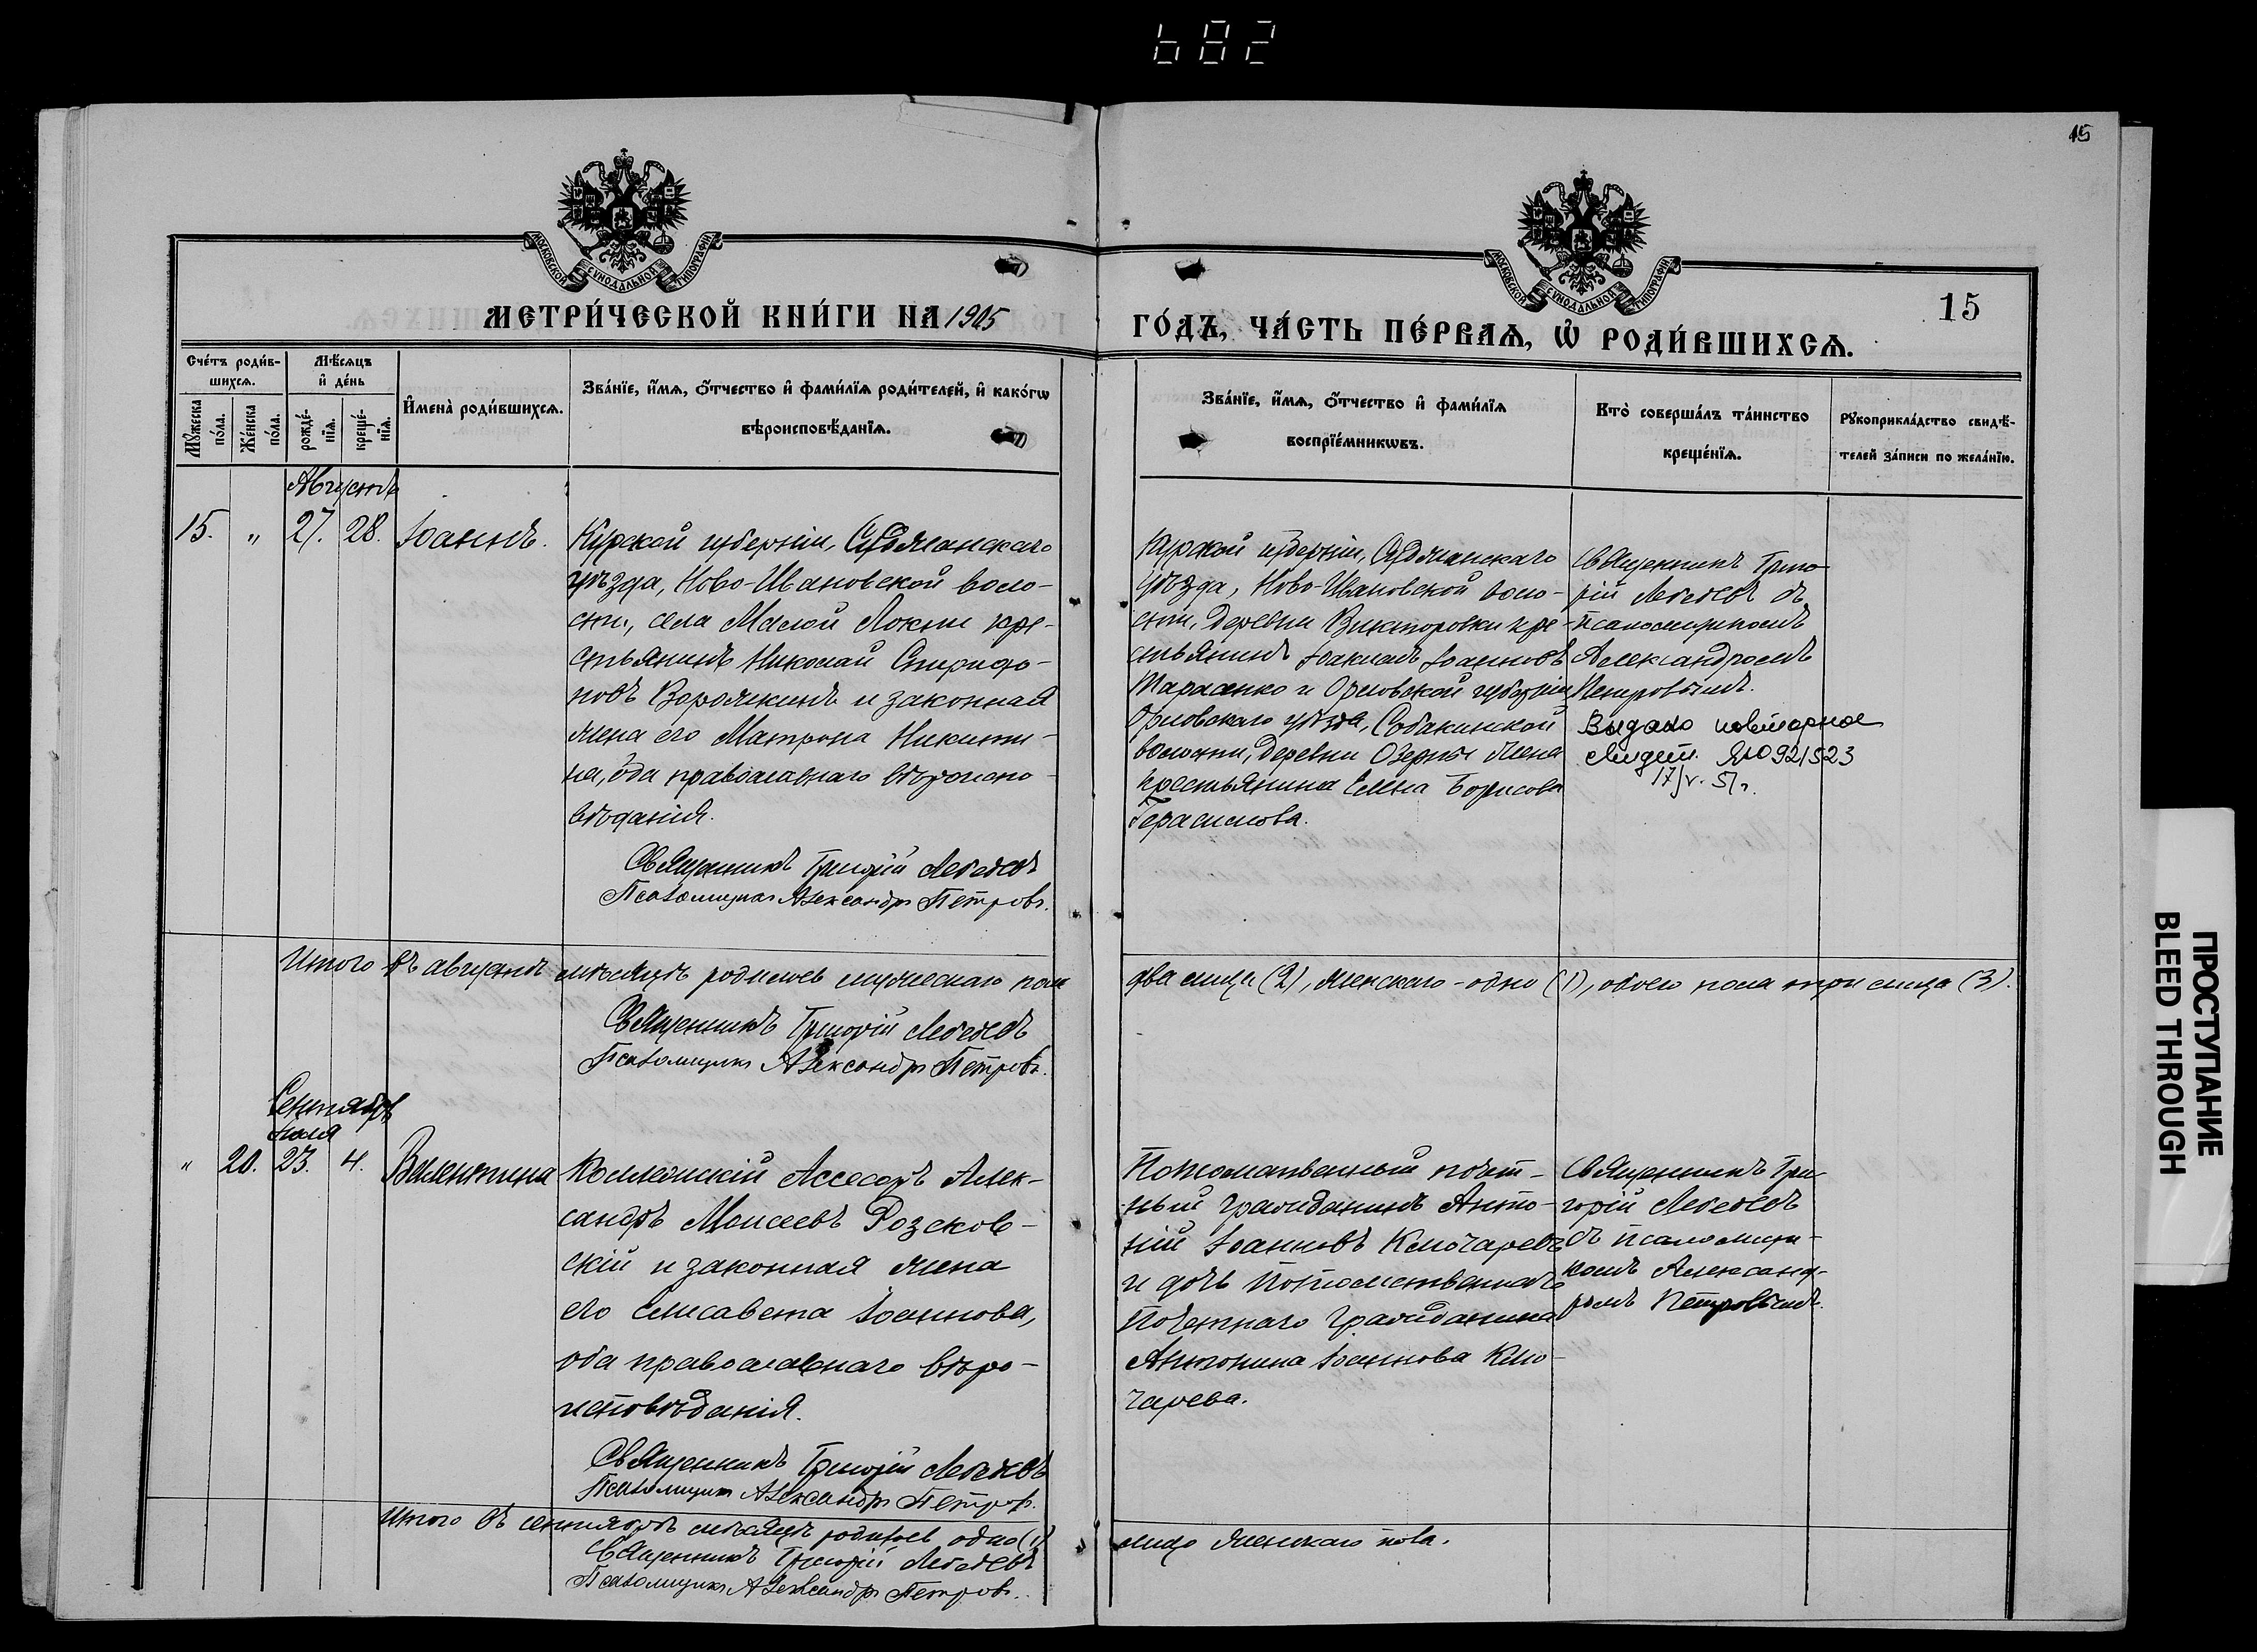 682
15
МОСКОВСКОЙ СѴНОДАЛЬНОЙ ТИПОГРАФІИ
МОСКОВСКОЙ СѴНОДАЛЬНОЙ ТИПОГРАФІИ
МЕТРИ́ЧЕСКОЙ КНИ́ГИ НА 1905
ГО́ДЪ, ЧА́СТЬ ПЕ́РВАѦ, Ѡ РОДИ́ВШИХСѦ.
15
Сче́тъ роди́в-
шихсѧ.
Мѣ́сѧцъ
и҆ де́нь
Мꙋ́жеска
по́ла.
Же́нска
по́ла.
рожде́-
нїѧ.
креще́-
нїѧ.
И҆мена̀ роди́вшихсѧ.
Зва́нїе, и҆́мѧ, ѻ҆́тчество и҆ фами́лїѧ роди́телей, и҆ како́гѡ
вѣроисповѣ́данїѧ.
Зва́нїе, и҆́мѧ, ѻ҆́тчество и҆ фами́лїѧ
воспрїе́мникѡвъ.
Кто̀ соверша́лъ та́инство
креще́нїѧ.
Рꙋкоприкла́дство свидѣ́-
телей за́писи по жела́нїю.
Августъ
15. " 27. 28. Іоаннъ.
Курской губерніи, Суджанскаго
уѣзда, Ново-Ивановской воло-
сти, села Малой Локни кре-
стьянинъ Николай Спиридо-
новъ Воронкинъ и законная
жена его Матрона Никити-
на, оба православнаго вѣроиспо-
вѣданія.
Священникъ Григорій Лебедевъ
Псаломщикъ Александръ Петровъ.
Курской губерніи, Суджанскаго
уѣзда, Ново-Ивановской воло-
сти, деревни Викторовки кре-
стьянинъ Іоакимъ Іоанновъ
Тарасенко и Орловской губерніи
Орловскаго уѣзда, Собакинской
волости, деревни Озерны жена
крестьянина Елена Борисова
Герасимова.
Священникъ Григо-
рій Лебедевъ съ
псаломщикомъ
Александромъ
Петровымъ.
Выдано повторное
свидет. ЯЮ 921523
17/V. 51г.
Итого въ августѣ мѣсяцѣ родилось мужескаго пола
два лица (2), женскаго - одно (1), обоего пола три лица (3).
Священникъ Григорій Лебедевъ
Псаломщикъ Александръ Петровъ.
Сентябрь
Іюля
" 20. 23. 4. Валентина
Коллежскій Ассесоръ Алек-
сандръ Моисеевъ Розсков-
скій и законная жена
его Елисавета Іоаннова,
оба православнаго вѣро-
исповѣданія.
Священникъ Григорій Лебедевъ
Псаломщикъ Александръ Петровъ.
Потомственный почет-
ный гражданинъ Анто-
ній Іоанновъ Ключаревъ
и дочь Потомственнаго
Почетнаго Гражданина
Антонина Іоаннова Клю-
чарева.
Священникъ Гри-
горій Лебедевъ
съ псаломщи-
комъ Александ-
ромъ Петровымъ.
Итого въ сентябрѣ мѣсяцѣ родилось одно (1)
лицо женскаго пола.
Священникъ Григорій Лебедевъ
Псаломщикъ Александръ Петровъ.
ПРОСТУПАНИЕ
BLEED THROUGH